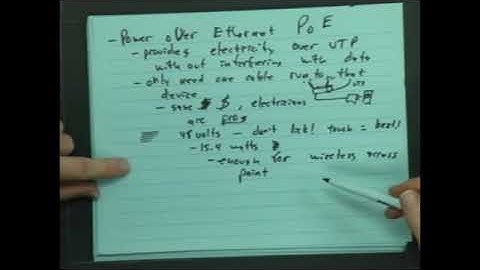 - Power over Ethernet PoE
- provides electricity over UTP
without interfering with data
- only need one cable run to that
device
- save $ $, electricians
are
48 volts - don't lick! touch = bad!
- 15.4 watts
- enough for wireless access
point